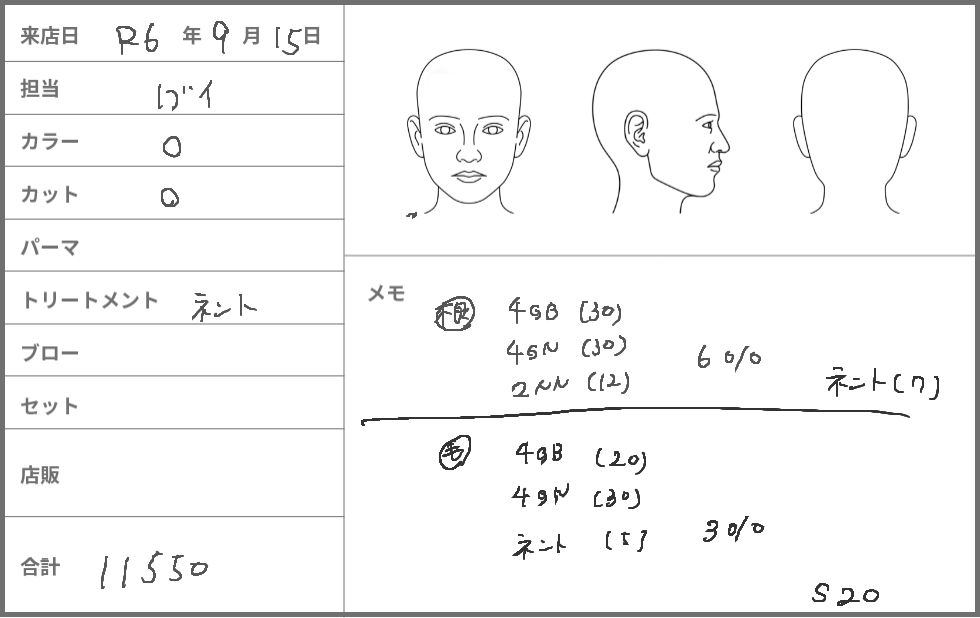 来店日 R6 年 9 月 15日
担当
カラー 〇
カット 〇
パーマ
トリートメント ネント
ブロー
セット
店販
合計 11550
メモ
根 4GB (30)
4GN (30)
2NN (12)
6%
ネント(7)
毛 4GB (20)
4GN (30)
ネント (5)
3%
S20